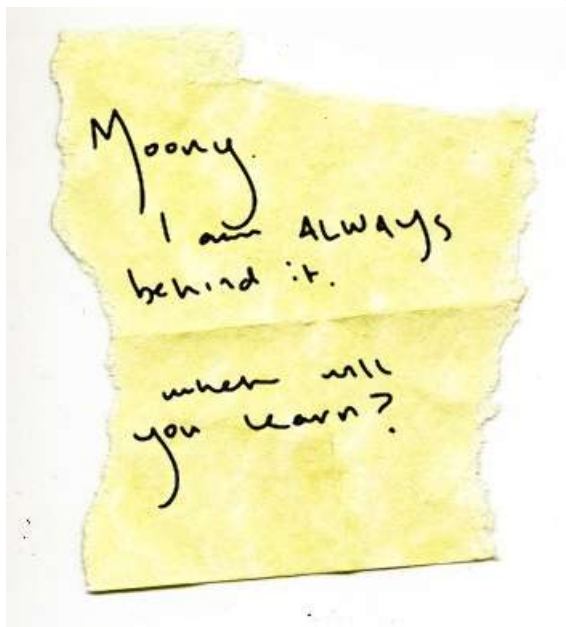 Moony.
I am ALWAYS
behind it.
when will
you learn?